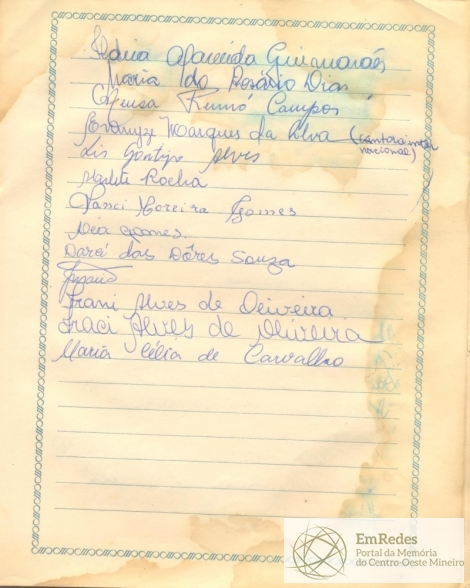 Aparecida Guimarães
Maria do Rosário Dias
Campos
Marques da Silva (cantora inter
nacional)
Lis Gontijo Alves
Marlete Rocha
Nanci Moreira Gomes
Déa Gomes.
Darci das Dôres Souza
Irani Alves de Oliveira
Iraci Alves de Oliveira
Maria Célia de Carvalho
EmRedes
Portal da Memória
do Centro-Oeste Mineiro